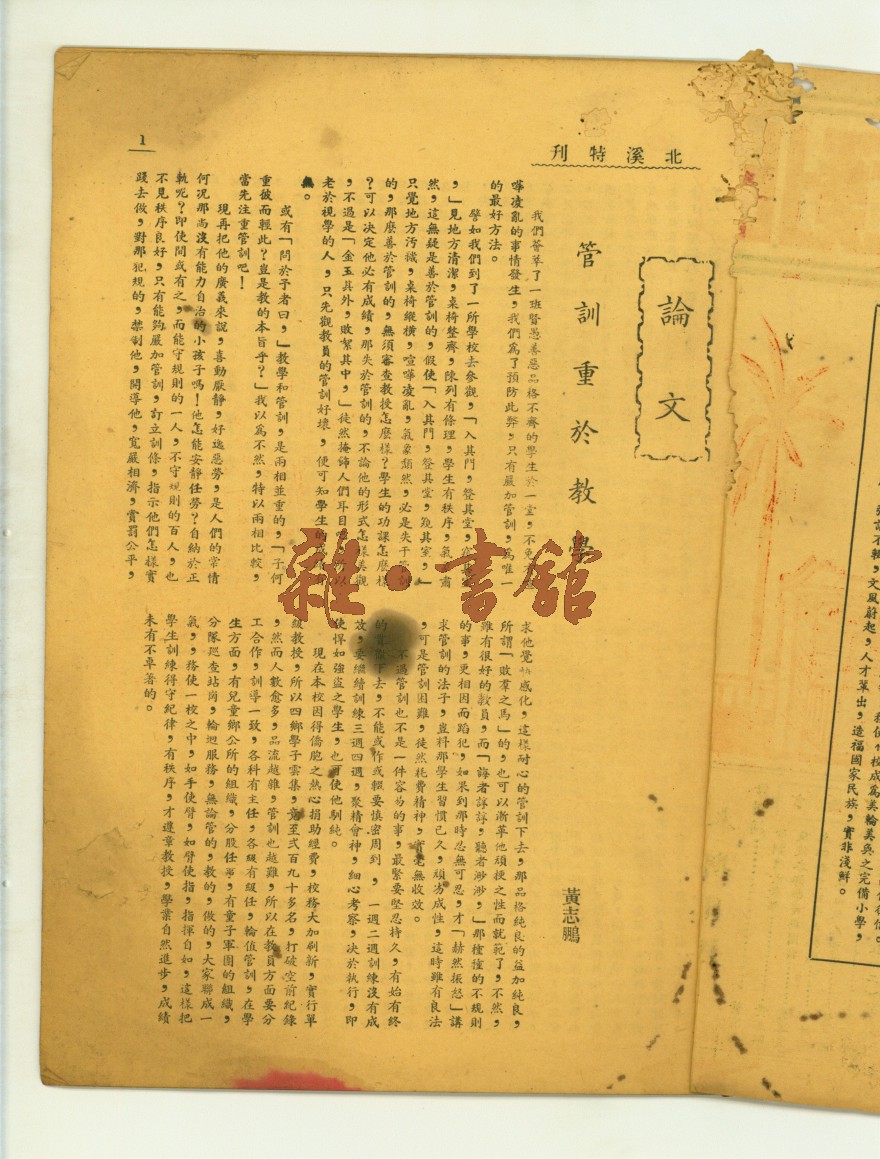 北溪特刊
1
論文
管訓重於教學
黃志鵬
我們薈萃了一班賢愚善惡品格不齊的學生於一堂,不免有
嘩凌亂的事情發生,我們爲了預防此弊,只有嚴加管訓,爲唯一
的最好方法。
譬如我們到了一所學校去參觀,「入其門,登其堂,
,」見地方清潔,桌椅整齊,陳列有條理,學生有秩序,氣 肅
然,這無疑是善於管訓的,假使「入其門,登其堂,窺其室,」
只覺地方汚穢,桌椅縱橫,喧嘩凌亂,氣象頹然,必是失于管訓
的,那麼善於管訓的,無須審查教授怎麼樣?學生的功課怎麼樣
?可以决定他必有成績,那失於管訓的,不論他的形式怎樣美觀
,不過是「金玉其外,敗絮其中,」徒然掩飾人們耳目 所以
老於視學的人,只先觀教員的管訓好壞,便可知學生的
無。
或有「問於予者曰,」教學和管訓,是兩相並重的,「子何
重彼而輕此?豈是教的本旨乎?」我以爲不然,特以兩相比較,
當先注重管訓吧!
現再把他的廣義來說,喜動厭靜,好逸惡勞,是人們的常情
何况那尚沒有能力自治的小孩子嗎!他怎能安靜任勞?自納於正
軌呢?即使間或有之,而能守規則的一人,不守規則的百人,也
不見秩序良好,只有能夠嚴加管訓,訂立訓條,指示他們怎樣實
踐去做,對那犯規的,禁制他,開導他,寬嚴相濟,賞罰公平,
求他覺悟感化,這樣耐心的管訓下去,那品格純良的益加純良,
所謂「敗羣之馬」的,也可以漸革他頑梗之性而就範了,不然,
雖有很好的教員,而「誨者諄諄,聽者渺渺,」那種種的不規則
的事,更相因而蹈犯,如果到那時忍無可忍,才「赫然振怒」講
求管訓的法子,豈料那學生習慣已久,頑劣成性,這時雖有良法
,可是管訓困難,徒然耗費精神,實毫無收效。
不過管訓也不是一件容易的事,最緊要堅忍持久,有始有終
的 下去,不能或作或輟要慎密周到,一週二週訓練沒有成
效,要繼續訓練三週四週,聚精會神,細心考察,决於執行,即
使悍如強盜之學生,也可使他馴純。
現在本校因得僑胞之熱心捐助經費,校務大加刷新,實行單
級教授,所以四鄉學子雲集,竟至弍百九十多名,打破空前紀錄
,然而人數愈多,品流越雜,管訓也越難,所以在教員方面要分
工合作,訓導一致,各科有主任,各級有級任,輪值管訓,在學
生方面,有兒童鄉公所的組織,分股任事,有童子軍團的組織,
分隊巡查站崗,輪迴服務,無論管的,教的,做的,大家聯成一
氣,務使一校之中,如手使臂,如臂使指,指揮自如,這樣把
學生訓練得守紀律,有秩序,才遵章教授,學業自然進步,成績
未有不卓著的。
不輟,文風蔚起,人才輩出,造福國家民族,實非淺鮮。
校成爲美輪美奐之完備小學,
雜·書館